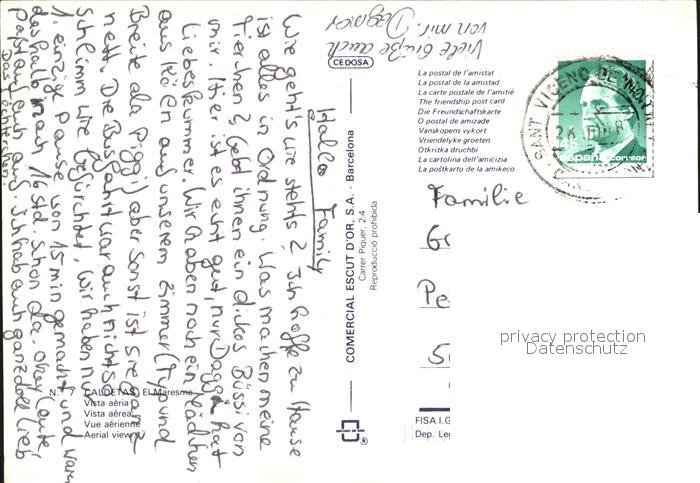 Hallo Family
Wie geht's wie stehts? Ich hoffe zu Hause
ist alles in Ordnung. Was machen meine
Tierchen? Gebt ihnen ein dickes Büssi von
mir. Hier ist es echt gut, nur Daggi hat
Liebeskummer. Wir haben noch ein Mädchen
aus Köln auf unserem Zimmer (Typ und
Breite ala Piggi) aber sonst ist sie ganz
nett. Die Busfahrt war auch nicht so
schlimm wie gefürchtet, wir haben nur
1. einzige Pause von 15 min gemacht und waren
deshalb nach 16 Std. schon da. Okay Leute,
paßt auf euch auf. Ich hab euch ganz doll lieb
Viele Grüße auch
von mir. Dagmar
N.° 7 CALDETAS. El Maresme
Vista aèria
Vista aérea
Vue aérienne
Aerial view
CEDOSA
COMERCIAL ESCUT D'OR, S.A. - Barcelona
Carrer Piquer, 2-4
Reproducció prohibida
®
La postal de l'amistat
La postal de la amistad
La carte postale de l'amitié
The friendship post card
Die Freundschaftskarte
O postal de amizade
Vanskopens vykort
Vriendelyke groeten
Otkritka druchbi
La cartolina dell'amicizia
La poŝtkarto de la amikeco
SANT VICENÇ DE MONTALT
45
españa correos
Familie
G
Pe
S
privacy protection
Datenschutz
FISA I.G
Dep. Leg